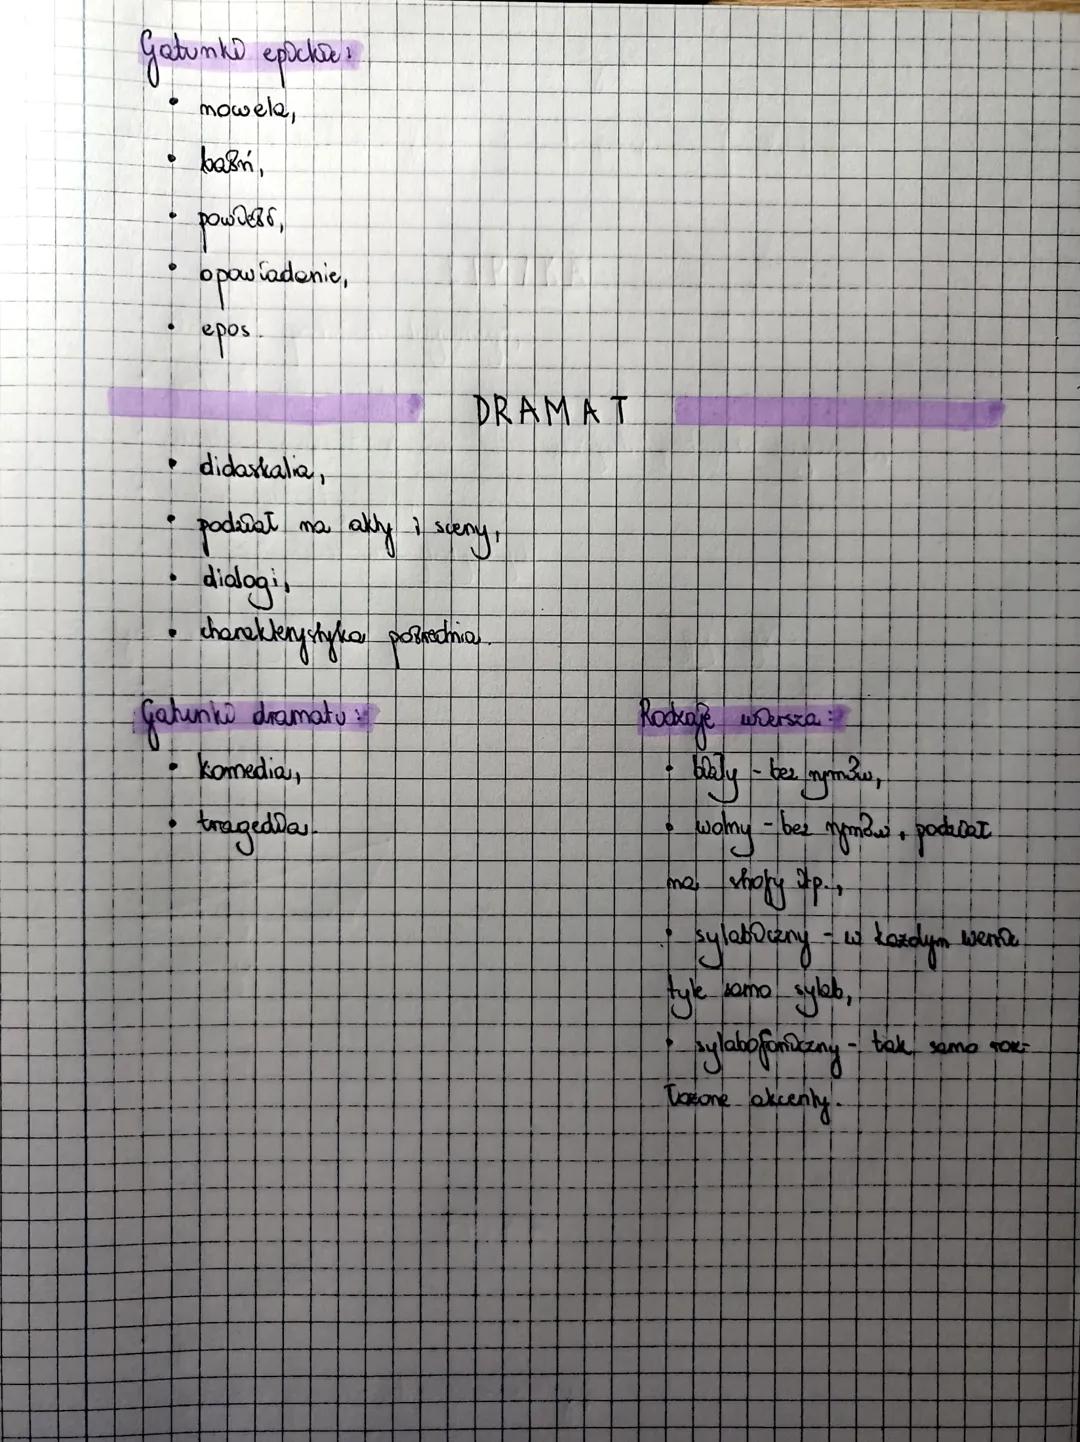 Gatunki epickie:
• nowela,
• baśń,
• powieść,
• opowiadanie,
• epos.
DRAMAT
• didaskalia,
• podział na akty i sceny,
• dialogi,
• charakterystyka pośrednia.
Gatunki dramatu:
• komedia,
• tragedia.
Rodzaje wiersza:
• biały - bez rymów,
• wolny - bez rymów, podział
na strofy itp.,
• sylabiczny - w każdym wersie
tyle samo sylab,
• sylabofoniczny - tak samo roz-
łożone akcenty.